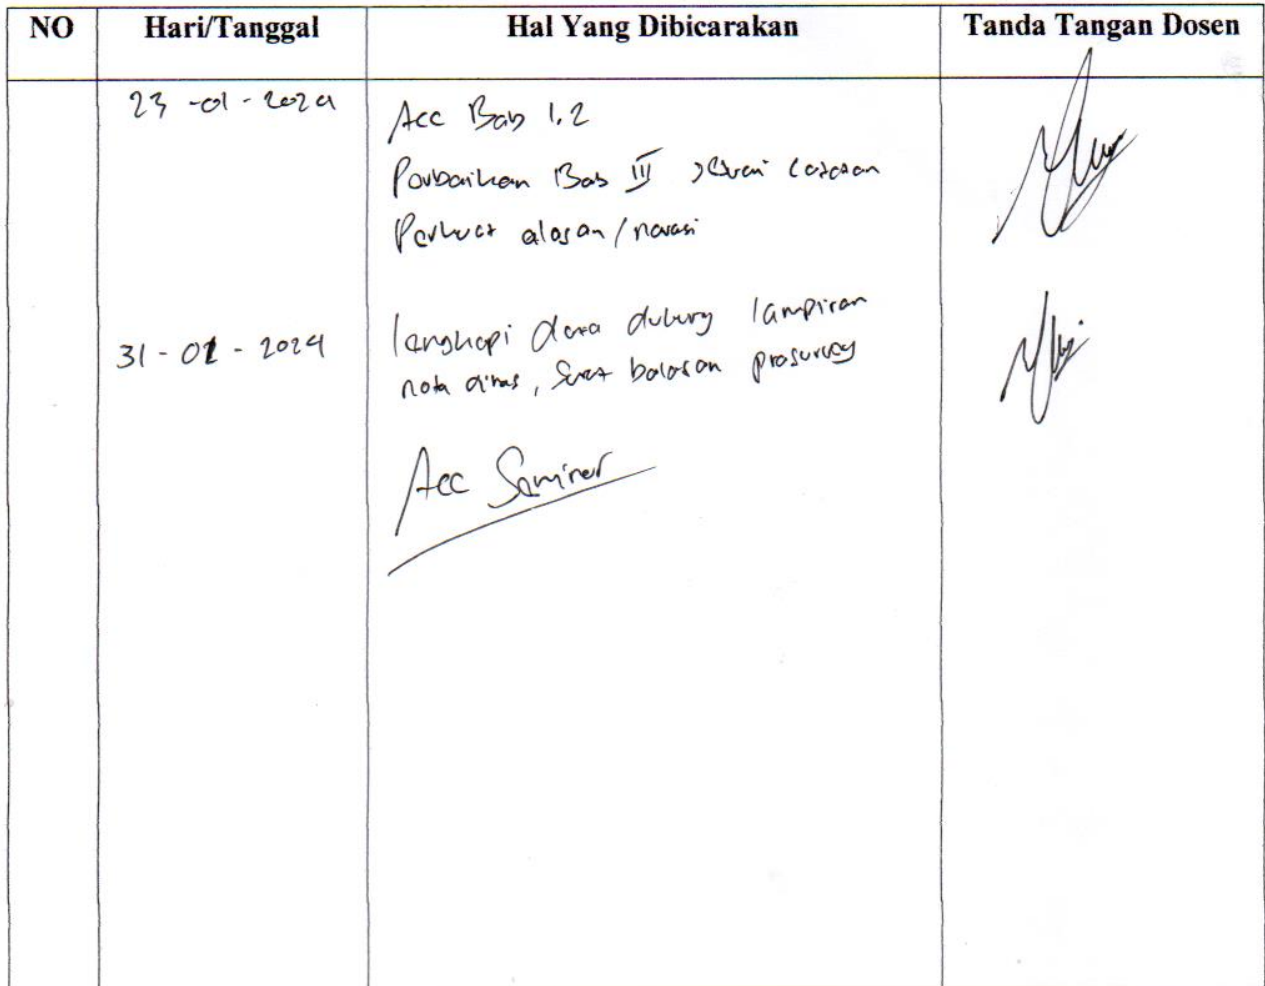 NO Hari/Tanggal Hal Yang Dibicarakan Tanda Tangan Dosen
23-01-2024 Acc Bab 1.2
Perbaikan Bab III sesuai catatan
Perkuat alasan/narasi
31-01-2024 lengkapi data dukung lampiran
nota dinas, Surat balasan prasurvey
Acc Seminar